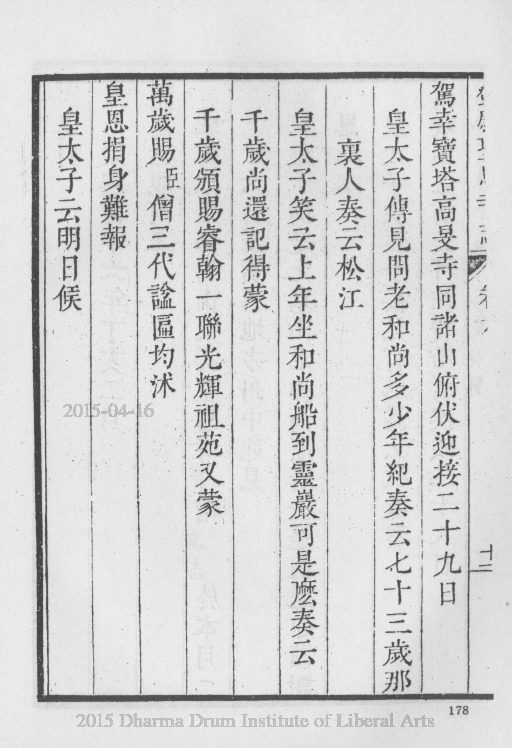 駕幸寶塔高旻寺同諸山俯伏迎接二十九日
皇太子傳見問老和尚多少年紀奏云七十三歲那
裏人奏云松江
皇太子笑云上年坐和尚船到靈巖可是麼奏云
千歲尚還記得蒙
千歲頒賜睿翰一聯光輝祖苑又蒙
萬歲賜臣僧三代諡匾均沐
皇恩捐身難報
皇太子云明日候
十二
178
2015-04-16
2015 Dharma Drum Institute of Liberal Arts